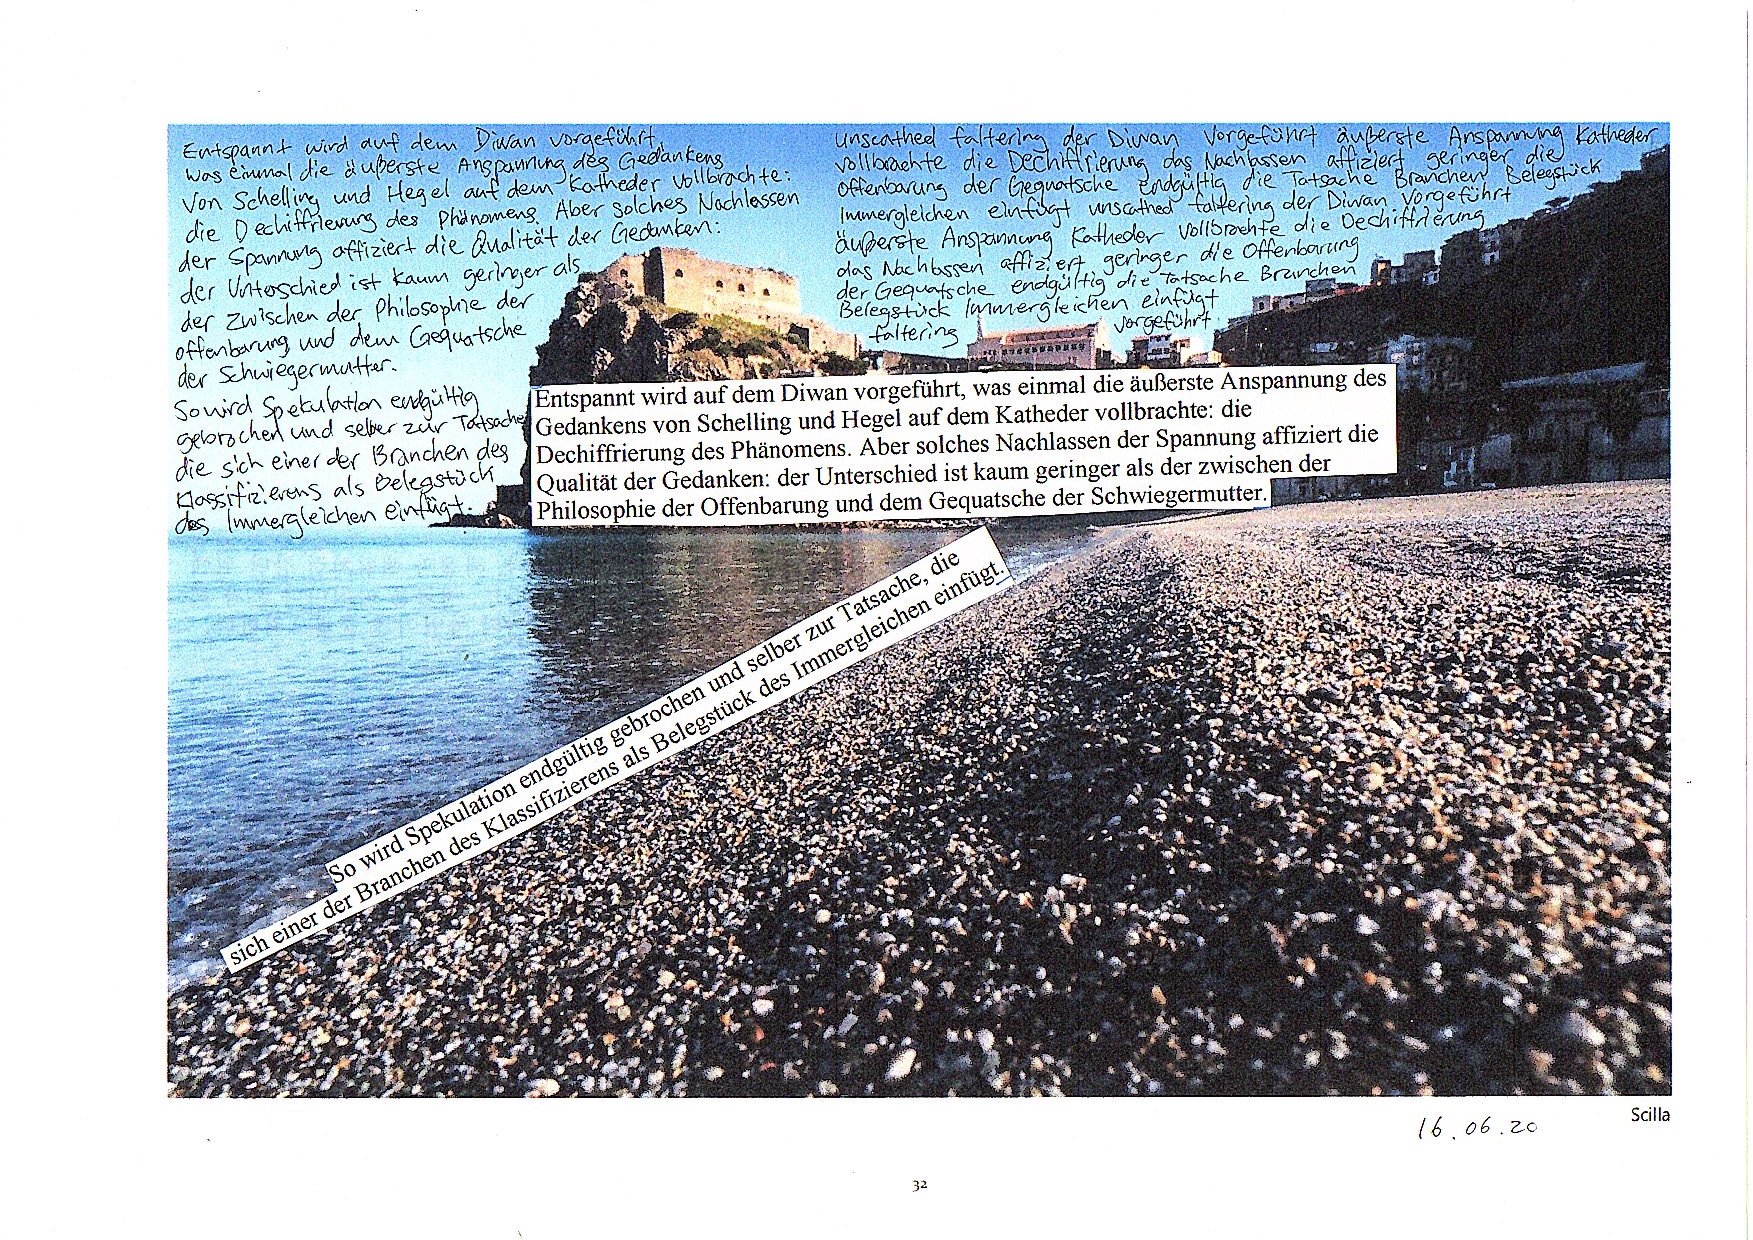 Entspannt wird auf dem Diwan vorgeführt,
was einmal die äußerste Anspannung des Gedankens
von Schelling und Hegel auf dem Katheder vollbrachte:
die Dechiffrierung des Phänomens. Aber solches Nachlassen
der Spannung affiziert die Qualität der Gedanken:
der Unterschied ist kaum geringer als
der zwischen der Philosophie der
Offenbarung und dem Gequatsche
der Schwiegermutter.
So wird Spekulation endgültig
gebrochen und selber zur Tatsache
die sich einer der Branchen des
Klassifizierens als Belegstück
des Immergleichen einfügt.
unscathed faltering der Diwan vorgeführt äußerste Anspannung Katheder
vollbrachte die Dechiffrierung das Nachlassen affiziert geringer die
Offenbarung der Gequatsche endgültig die Tatsache Branchen Belegstück
Immergleichen einfügt unscathed faltering der Diwan vorgeführt
äußerste Anspannung Katheder vollbrachte die Dechiffrierung
das Nachlassen affiziert geringer die Offenbarung
der Gequatsche endgültig die Tatsache Branchen
Belegstück Immergleichen einfügt
faltering vorgeführt.
Entspannt wird auf dem Diwan vorgeführt, was einmal die äußerste Anspannung des
Gedankens von Schelling und Hegel auf dem Katheder vollbrachte: die
Dechiffrierung des Phänomens. Aber solches Nachlassen der Spannung affiziert die
Qualität der Gedanken: der Unterschied ist kaum geringer als der zwischen der
Philosophie der Offenbarung und dem Gequatsche der Schwiegermutter.
So wird Spekulation endgültig gebrochen und selber zur Tatsache, die
sich einer der Branchen des Klassifizierens als Belegstück des Immergleichen einfügt.
Scilla
16.06.20
32